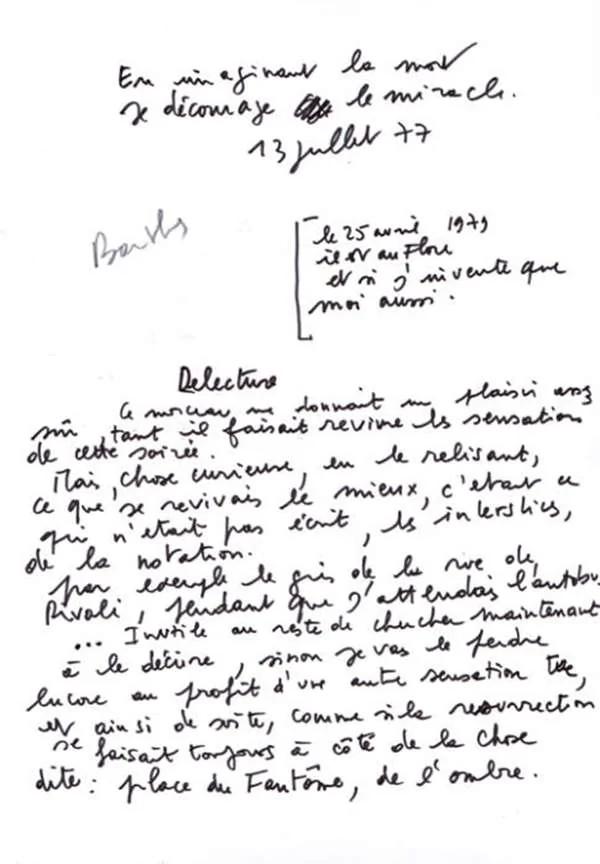 En imaginant la mort
je décourage le miracle.
13 juillet 77
Barthes
le 25 avril 1979
il est au Flore
et si j'invente que
moi aussi.
Relecture
Ce morceau me donnait un plaisir assez
sûr, tant il faisait revivre les sensations
de cette soirée.
Mais, chose curieuse, en le relisant,
ce que je revivais le mieux, c'était ce
qui n'était pas écrit, les interstices,
de la notation.
par exemple le gris de la rue de
Rivoli, pendant que j'attendais l'autobus
... Inutile au reste de chercher maintenant
à le décrire, sinon je vas le perdre
encore au profit d'une autre sensation
et ainsi de suite, comme si la resurrection
se faisait toujours à côté de la chose
dite : place du Fantôme, de l'ombre.